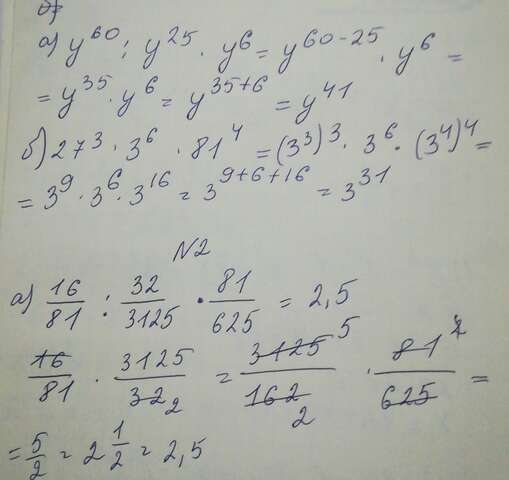 а) y^60 : y^25 · y^6 = y^60-25 · y^6 =
= y^35 · y^6 = y^35+6 = y^41
б) 27^3 · 3^6 · 81^4 = (3^3)^3 · 3^6 · (3^4)^4 =
= 3^9 · 3^6 · 3^16 = 3^9+6+16 = 3^31
N2
а) 16/81 : 32/3125 · 81/625 = 2,5
16/81 · 3125/32 2 = 3125 5/162 2 · 81 1/625 =
= 5/2 = 2 1/2 = 2,5